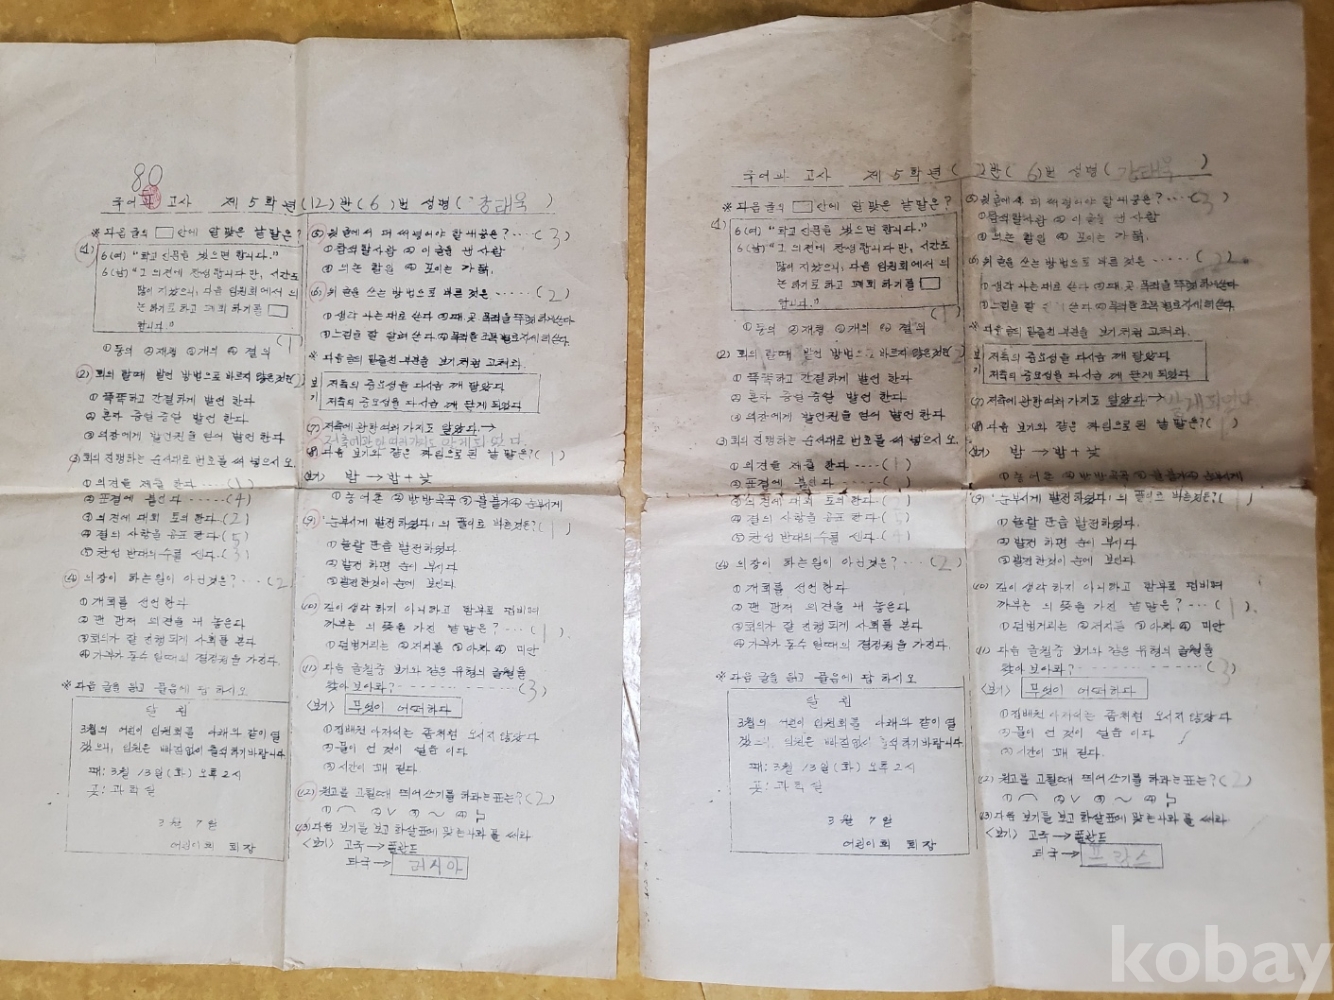 80
국어과 고사 제 5학년 (12)반 (6)번 성명 (강태욱)
※ 다음 글의 □ 안에 알맞은 낱말은?
(1)
6(여) "학급 신문을 냈으면 합니다."
6(남) "그 의견에 찬성합니다만, 시간도
많이 지났으니, 다음 임원회에서 의
논하기로 하고 폐회하기를 □
합니다."
①동의 ②재청 ③개의 ④결의 (1)
(2) 회의 할때 발언 방법으로 바르지 않은것은 (2)
① 똑똑하고 간결하게 발언 한다
② 혼자 중얼중얼 발언 한다
③ 의장에게 발언권을 얻어 발언 한다
(3) 회의 진행하는 순서대로 번호를 써 넣으시오.
① 의견을 제출 한다 ····(1)
② 표결에 붙인다 ·····(4)
③ 의견에 대해 토의 한다 (2)
④ 결의 사항을 공표 한다 (5)
⑤ 찬성 반대의 수를 센다 (3)
(4) 의장이 하는일이 아닌것은? ··· (2)
① 개회를 선언 한다
② 맨 먼저 의견을 내 놓는다
③ 회의가 잘 진행 되게 사회를 본다
④ 가부가 동수 일때의 결정권을 가진다.
※ 다음 글을 읽고 물음에 답 하시오
알 림
3월의 어린이 임원회를 아래와 같이 열
겠으니, 임원은 빠짐없이 출석하기 바랍니다
때: 3월 13일(화) 오후 2시
곳: 과학실
3월 7일
어린이회 회장
(5) 윗글에서 더 써넣어야 할 내용은? ··· (3)
① 참석할사람 ② 이글을 쓴 사람
③ 의논 할일 ④ 모이는 까닭.
(6) 위 글을 쓰는 방법으로 바른 것은 ····· (2)
① 생각 나는 대로 쓴다
※ 다음글의 밑줄친 부분을 보기처럼 고쳐라.
보기
저축의 중요성을 다시금 깨달았다
저축의 중요성을 다시금 깨닫게 되었다
(7) 저축에 관한 여러가지도 알았다 →
저축에 관한 여러가지도 알게 되었다.
(8) 다음 보기와 같은 짜임으로 된 낱말은? (1)
<보기> 밤 → 밤 + 낮
(9) '눈부시게 발전하였다'의 풀이로 바른것은? (1)
① 놀랄 만큼 발전하였다.
② 발전 하면 눈이 부시다
③ 발전한것이 눈에 보인다.
(10) 깊이 생각 하지 아니하고 함부로 덤비며
까부는 의 뜻을 가진 낱말은? ··· (1)
① 덤벙거리는 ② 저지른 ③ 아차 ④ 미안
(11) 다음 글월중 보기와 같은 유형의 글월을
찾아 보아라? (3)
<보기> 무엇이 어떠하다
① 집배원 아저씨는 좀처럼 오시지 않았다
② 물이 언 것이 얼음 이다
③ 시간이 꽤 길다.
(12) 원고를 고칠때 띄어쓰기를 하라는 표는? (2)
① ⌒ ② ∨ ③ ～ ④
(13) 다음 보기를 보고 화살표에 맞는나라 를 써라
<보기> 고국 → 폴란드
타국 → 러시아
국어과 고사 제 5학년 ( 2)반 ( 6)번 성명 (강태욱 )
※ 다음 글의 □ 안에 알맞은 낱말은?
(1)
6(여) "학급 신문을 냈으면 합니다."
6(남) "그 의견에 찬성합니다만, 시간도
많이 지났으니, 다음 임원회에서 의
논하기로 하고 폐회 하기를 □
합니다."
①동의 ②재청 ③개의 ④결의 (1)
(2) 회의 할때 발언 방법으로 바르지 않은것은
① 똑똑하고 간결하게 발언 한다
② 혼자 중얼중얼 발언 한다
③ 의장에게 발언권을 얻어 발언 한다
(3) 회의 진행하는 순서대로 번호를 써 넣으시오.
① 의견을 제출 한다 ····(1)
② 표결에 붙인다
③ 의견에 대해 토의 한다
④ 결의 사항을 공표 한다
⑤ 찬성 반대의 수를 센다
(4) 의장이 하는일이 아닌것은? ··· (2)
① 개회를 선언 한다
② 맨 먼저 의견을 내 놓는다
③ 회의가 잘 진행 되게 사회를 본다
④ 가부가 동수 일때의 결정권을 가진다.
※ 다음 글을 읽고 물음에 답 하시오
알 림
3월의 어린이 임원회를 아래와 같이 열
겠으니, 임원은 빠짐없이 출석하기 바랍니다
때: 3월 13일(화) 오후 2시
곳: 과학실
3월 7일
어린이회 회장
(5) 윗글에서 더 써넣어야 할 내용은? ··· (3)
① 참석할사람 ② 이글을 쓴 사람
③ 의논 할일 ④ 모이는 까닭.
(6) 위 글을 쓰는 방법으로 바른 것은 ····· (2)
※ 다음글의 밑줄친 부분을 보기처럼 고쳐라.
보기
저축의 중요성을 다시금 깨달았다
저축의 중요성을 다시금 깨닫게 되었다
(7) 저축에 관한 여러가지도 알았다 → 알게되었다.
(8) 다음 보기와 같은 짜임으로 된 낱말은?
<보기> 밤 → 밤 + 낮
(9) '눈부시게 발전하였다'의 풀이로 바른것은? (1)
① 놀랄 만큼 발전하였다.
② 발전 하면 눈이 부시다
③ 발전한것이 눈에 보인다.
(10) 깊이 생각 하지 아니하고 함부로 덤비며
까부는 의 뜻을 가진 낱말은? ··· (1)
① 덤벙거리는 ② 저지른 ③ 아차 ④ 미안
(11) 다음 글월중 보기와 같은 유형의 글월을
찾아 보아라? (3)
<보기> 무엇이 어떠하다
① 집배원 아저씨는 좀처럼 오시지 않았다
② 물이 언 것이 얼음 이다
③ 시간이 꽤 길다.
(12) 원고를 고칠때 띄어쓰기를 하라는 표는? (2)
① ⌒ ② ∨ ③ ～ ④
(13) 다음 보기를 보고 화살표에 맞는나라 를 써라
<보기> 고국 → 폴란드
타국 → 프랑스
kobay